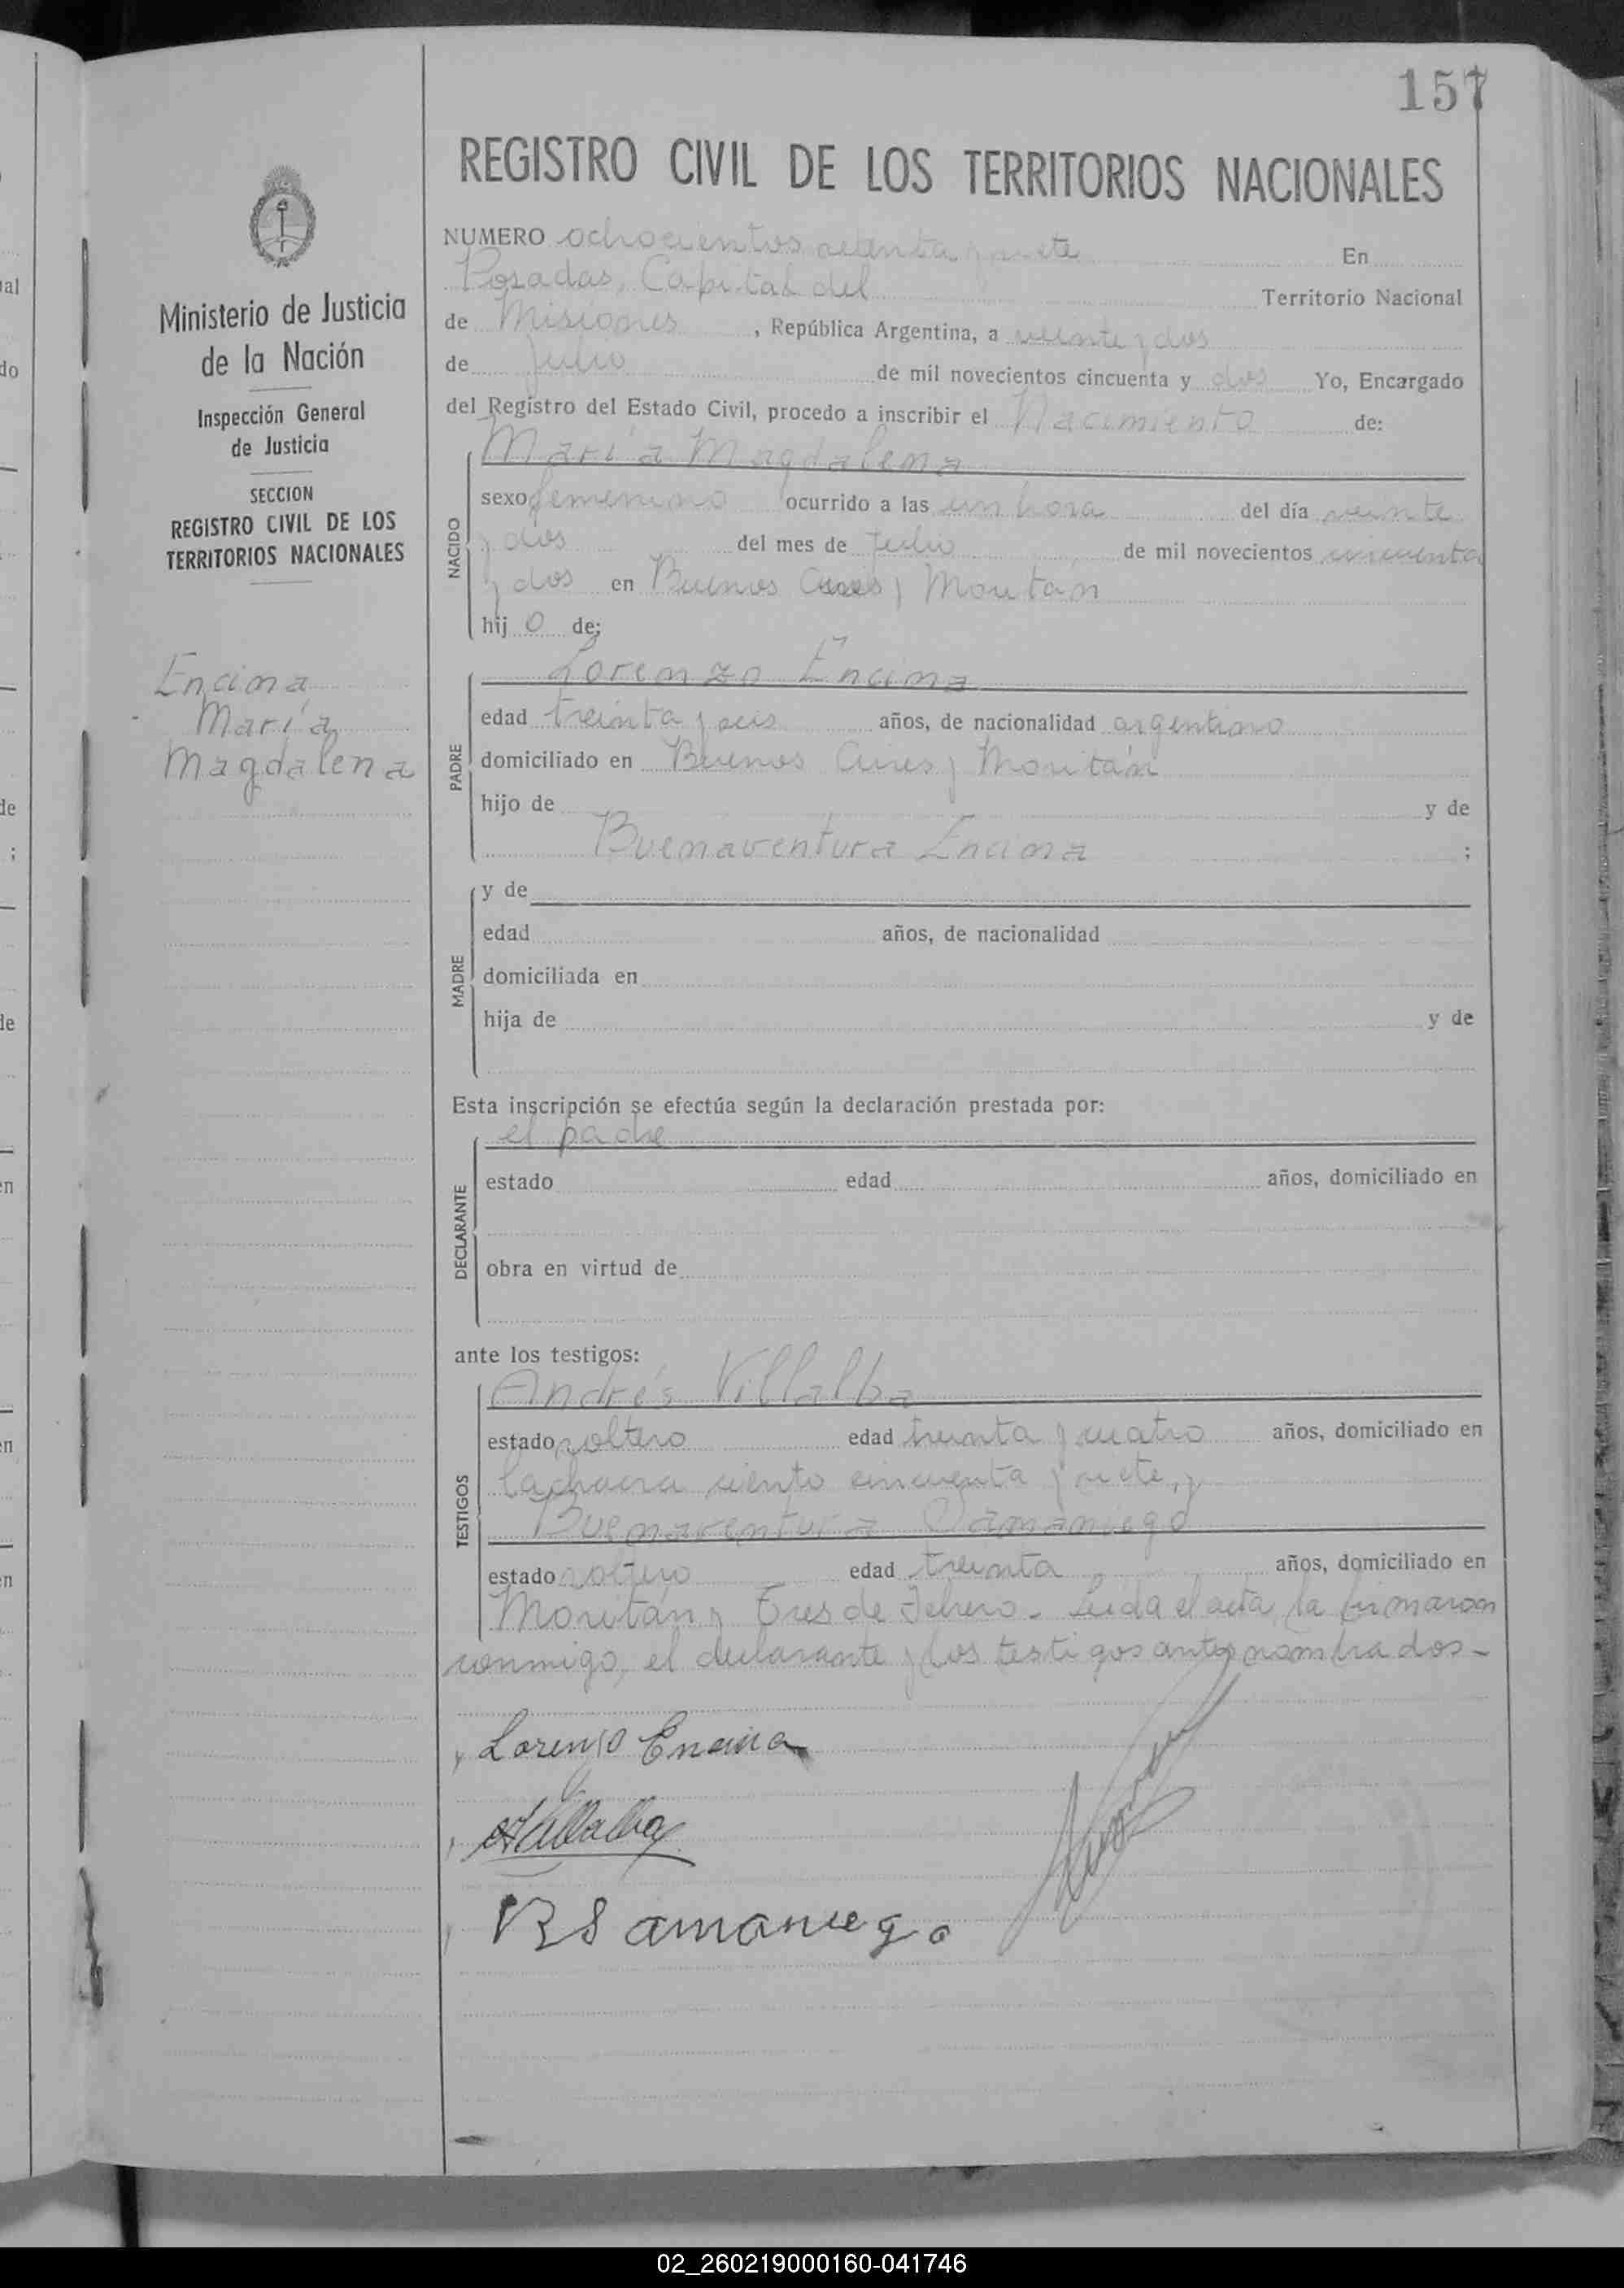 157
REGISTRO CIVIL DE LOS TERRITORIOS NACIONALES
Ministerio de Justicia
de la Nación
Inspección General
de Justicia
SECCION
REGISTRO CIVIL DE LOS
TERRITORIOS NACIONALES
Encina
María
Magdalena
NUMERO ochocientos y siete En
Posadas, Capital del Territorio Nacional
de Misiones, República Argentina, a veinte y dos
de Julio de mil novecientos cincuenta y dos Yo, Encargado
del Registro del Estado Civil, procedo a inscribir el Nacimiento de:
María Magdalena
NACIDO
sexo femenino ocurrido a las un hora del día veinte
y dos del mes de Julio de mil novecientos cincuenta
y dos en Buenos Aires y
hij o de;
Lorenzo Encina
PADRE
edad treinta y seis años, de nacionalidad argentino
domiciliado en Buenos Aires y
hijo de y de
Buenaventura Encina ;
MADRE
y de
edad años, de nacionalidad
domiciliada en
hija de y de
Esta inscripción se efectúa según la declaración prestada por:
el padre
DECLARANTE
estado edad años, domiciliado en
obra en virtud de
ante los testigos:
Andrés Villalba
TESTIGOS
estado soltero edad treinta y cuatro años, domiciliado en
la chacra ciento cincuenta y siete, y
Buenaventura Samaniego
estado soltero edad treinta años, domiciliado en
y Tres de Febrero. Leida el acta, la firmaron
conmigo, el declarante y los testigos antes nombrados-
Lorenzo Encina
AVillalba
B Samaniego
02_260219000160-041746